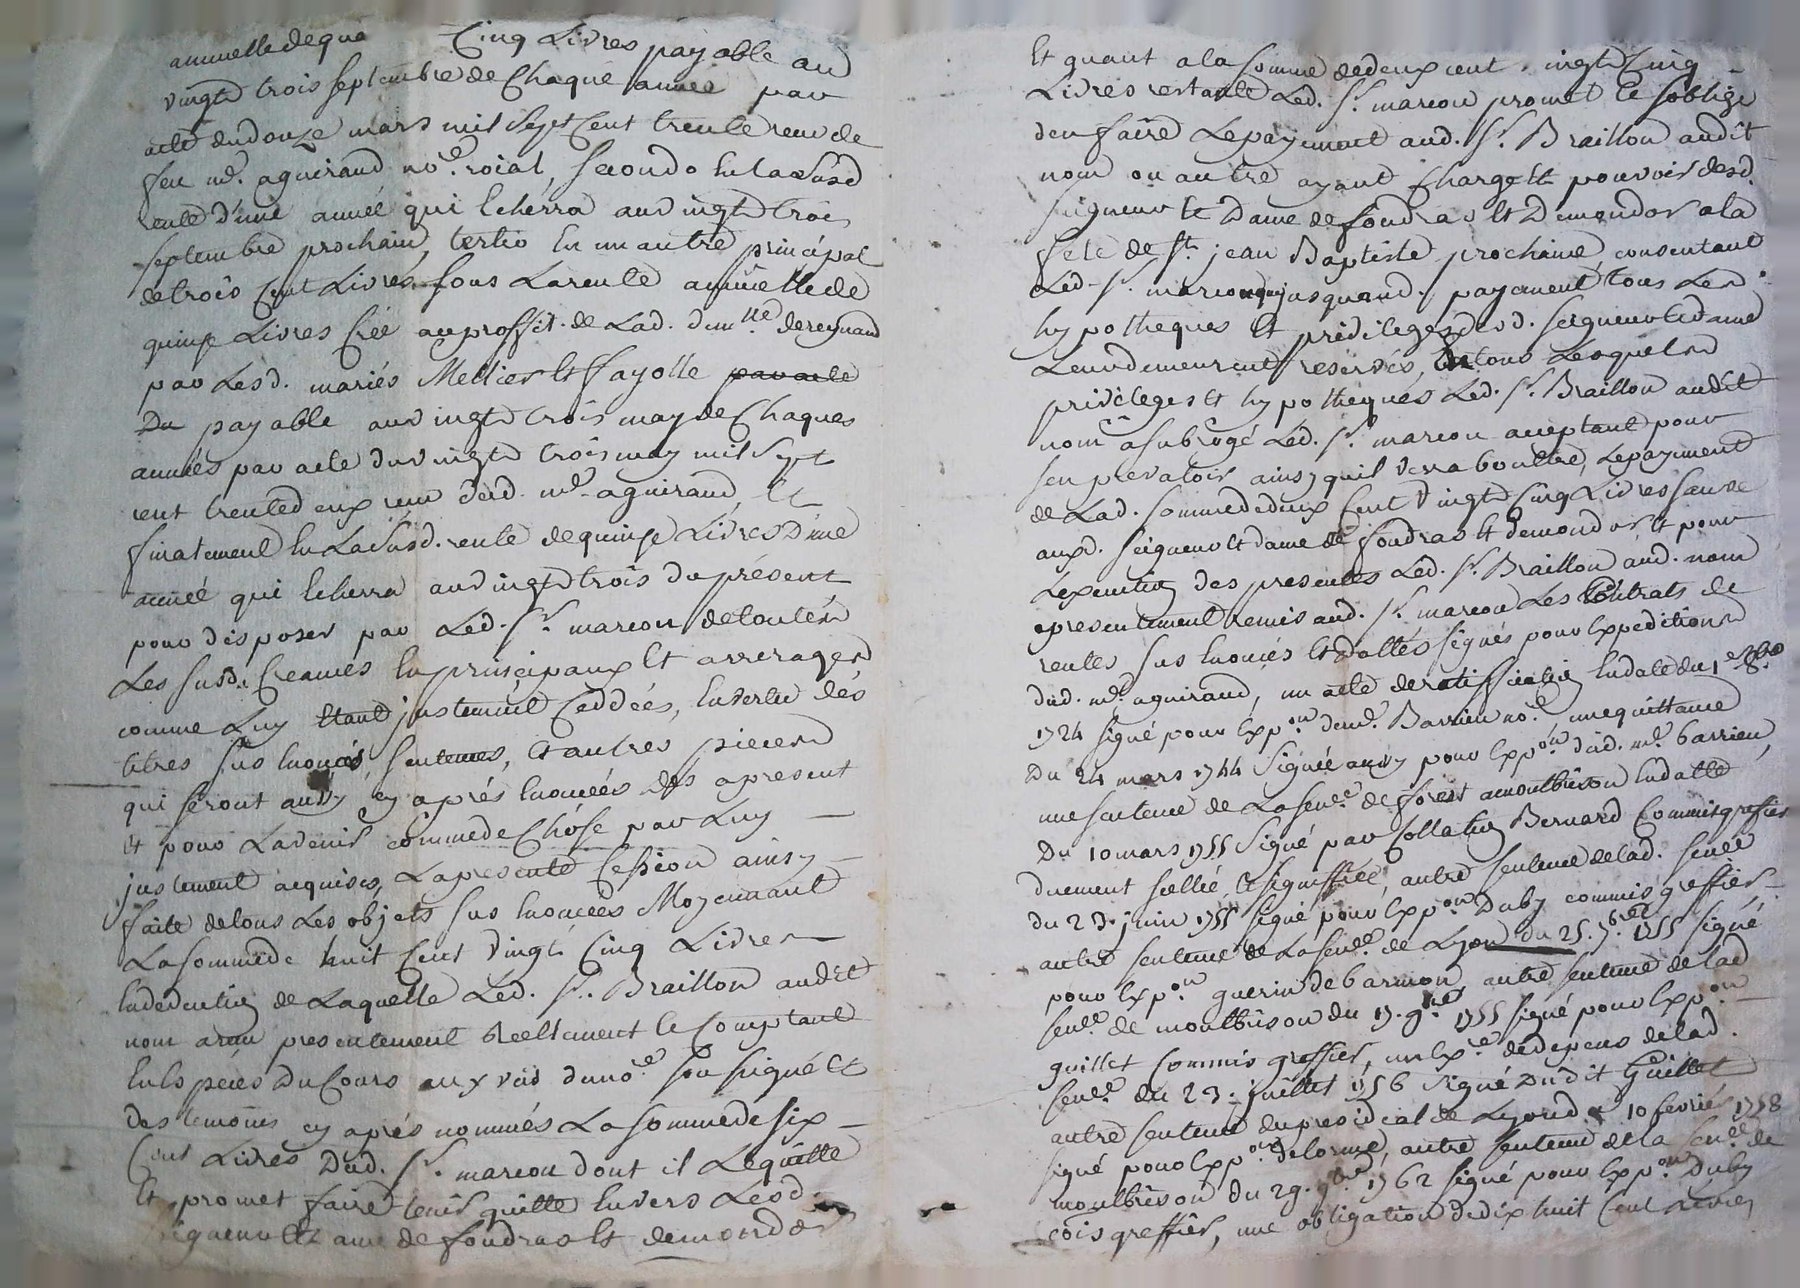 annuelle de qua Cinq Livres payable au
vingt trois septembre de Chaque année par
acte du douze mars mil sept Cent trente reçu de
feu me. aguiraud no.re roial, secondo en la susd
rente d'une année qui echerra au vingt trois
septembre prochain, tertio en un autre principal
de trois Cent Livres sous La rente annuelle de
quinze Livres Créé au proffit de Lad. dem.lle de reynaud
par Lesd. mariés Mellier et fayolle par acte
Du payable au vingt trois may de Chaques
années par acte du vingt trois may mil sept
cent trente deux reçu dud. me. aguiraud, et
finalement en La susd. rente de quinze Livres d'une
année qui echerra au vingt trois du présent
pour disposer par Led. Sr. marcou de toutes
Les susd. Creances en principaux et arrerages
comme Luy étant justement Ceddées, en vertu des
titres sus énoncés, sentences, et autres pieces
qui seront aussy cy aprés énoncées dès apresent
et pour Lavenir comme de Chose par Luy
justement acquises, La presente Cession ainsy
faite de tous Les objets sus énoncées Moyennant
La somme de huit Cent vingt Cinq Livres
en deduction de Laquelle Led. Sr. Braillon audit
nom a reçu presentement reellement et Comptant
en Espèces Du Cours aux vüe du no.re soussigné et
des temoins cy après nommés La somme de six
Cent Livres Dud. Sr. marcou dont il Le quitte
Et promet faire tenir quitte envers Lesd.
seigneur et dame de foudras et demondor
Et quant a la somme de deux cent vingt Cinq
Livres restante Led. Sr. marcou promet et s'oblige
d'en faire Le payement aud. Sr. Braillon audit
nom ou autre ayant Charge et pouvoir desd.
seigneur et Dame de foudras et Demondor a la
fête de St. jean Baptiste prochaine consentant
Led. Sr. marcou que jusquaud. payement tous Les
hypotheques et privileges desd. seigneur et dame
Leur demeurent reservés, en tous Lesquels
privileges et hypotheques Led. Sr. Braillon audit
nom a subrogé Led. Sr. marcou acceptant pour
s'en prevaloir ainsy quil verra bon être, Le payement
de Lad. somme de deux Cent vingt Cinq Livres sauve
auxd. seigneur et dame de foudras et demondor et pour
L'execution des presentes Led. Sr. Braillon aud. nom
a presentement remis aud. Sr. marcou Les Contrats de
rentes sus énoncés et dattés signés pour expeditions
dud. me. aguiraud, un acte de ratiffication en date du 1er 8bre
1724 signé pour Exp.on de me. Barrieu no.re une quittance
Du 24 mars 1744 Signée aussy pour Exp.on dud. me. barrieu,
une sentence de La sen.ée de forest a montbrison en datte
Du 10 mars 1755 Signé par Collation Bernard Commis greffier
duement scellée et signiffiée, autre sentence de Lad. senée
du 23. juin 1755 signé pour Exp.on Duby commis greffier
autre sentence de La sen.ée de Lyon du 25. 7bre 1755 signé
pour Exp.on guerin de barmon, autre sentence de Lad
sen.ée de montbrison du 17. 9bre 1755 signé pour Exp.on
guillet Commis greffier, un Ex.re de depens de Lad.
sen.ée du 23. juillet 1756 signé Dudit Guillet
autre sentence du presidial de Lyon d. 10 fevrier 1758
signé pour Exp.on delorme, autre sentence de la sen.ée de
montbrison du 29. 9bre 1762 signé pour Exp.on Duby
cois greffier, une obligation de dix huit Cent Livres